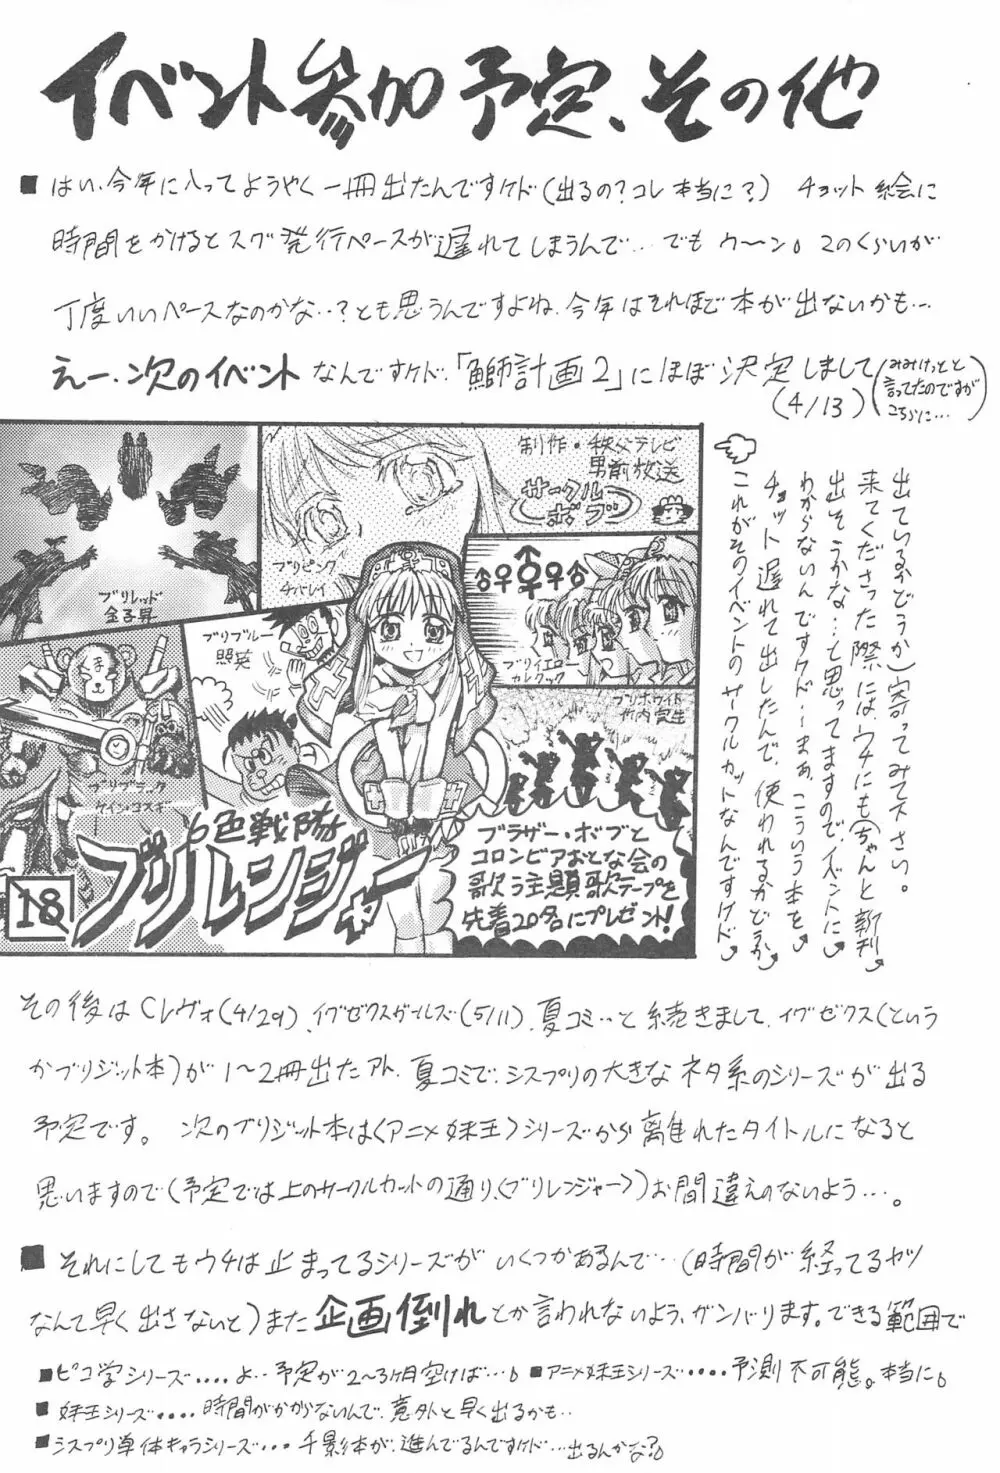 イベント参加予定、その他
■はい、今年に入ってようやく一冊出たんですケド(出るの?コレ本当に?) チョット絵に
時間をかけるとスグ発行ペースが遅れてしまうんで…でもウ〜ン。このくらいが
丁度いいペースなのかな…?とも思うんですよね、今年はそれほど本が出ないかも…
えー、次のイベントなんですケド、「鰤計画2」にほぼ決定しまして
(4/13)
(みみけっとと
言ってたのですが
こちらに…)
制作・秩父テレビ
男前放送
サークル
ボブ
ブリピンク
チバレイ
ブリレッド
金子昇
ブリブルー
照英
ブリイエロー
カレクック
ブリホワイト
竹内実生
くま
ブリブラック
ケイン・コスギ
6色戦隊
ブリレンジャー
18
ブラザー・ボブと
コロンビアおとな会の
歌う主題歌テープを
先着20名にプレゼント!
出ているかどうか)寄ってみて下さい。
来てくださった際には、ウチにも(ちゃんと新刊
出そうかな…と思ってますのでイベントに
わからないんですケド…まぁ、こういう本を
チョット遅れて出したんで、使われるかどうか
これがそのイベントのサークルカットなんですケド
その後はCレヴォ(4/29)、イグゼクスガールズ(5/11)、夏コミ…と続きまして、イグゼクス(という
かブリジット本)が1〜2冊出たアト、夏コミで、シスプリの大きなネタ系のシリーズが出る
予定です。 次のブリジット本は〈アニメ妹王〉シリーズから離れたタイトルになると
思いますので(予定では上のサークルカットの通り、〈ブリレンジャー〉)お間違えのないよう…。
■それにしてもウチは止まってるシリーズがいくつかあるんで…(時間が経ってるヤツ
なんて早く出さないと)また企画倒れとか言われないよう、ガンバります。できる範囲で
■ピコ学シリーズ‥‥よ…予定が2〜3ヶ月空けば…。 ■アニメ妹王シリーズ‥‥予測不可能。本当に。
■妹王シリーズ‥‥時間がかからないんで、意外と早く出るかも…
■シスプリ単体キャラシリーズ…千影本が、進んでるんですケド…出るんかな?。